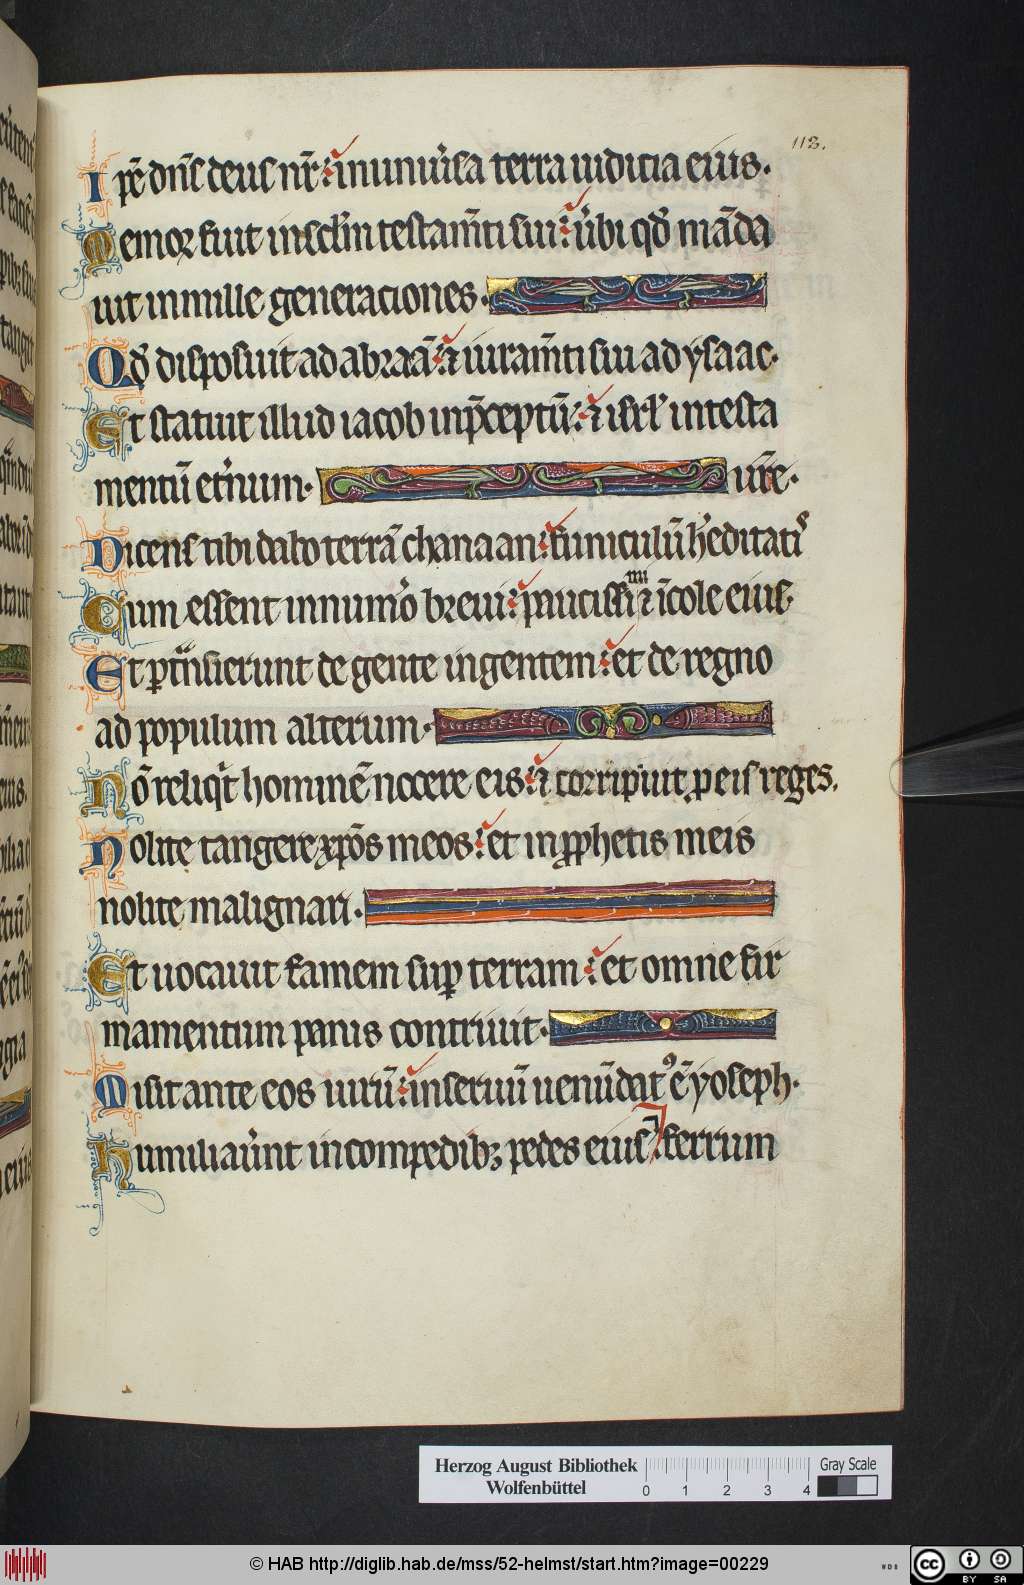 113.
Ip̄e dn̄s deus nr̄ : in uniu̓sa terra iudicia eius.
Memor fuit in sc̄lm testam̄ti sui : u̓bi qd̄ mā da
uit in mille generationes.
Qd̄ disposuit ad abraā : ⁊ iuram̄ti sui ad ysaac.
Et statuit illud iacob in p̄ceptū : ⁊ isrł in testa
mentū et̓num. ur̄e.
Dicens tibi dabo terrā chanaan : funiculū h̓editatis
Cum essent in num̓o breui : paucissimi ⁊ īcole eius.
Et ꝑtn̄sierunt de gente in gentem : et de regno
ad populum alterum.
Nō reliqt hominē nocere eis : ⁊ corripiuit ꝑ eis reges.
Nolite tangere xp̄os meos : et in ꝓphetis meis
nolite malignari.
Et uocauit famem suꝑ terram : et omne fir
mamentum panis contriuit.
Misit ante eos uirū : in seruū uenūdatꝰ ē yoseph.
Humiliau̓nt in compedibꝫ pedes eius : ferrum
Herzog August Bibliothek
Wolfenbüttel
0 1 2 3 4
Gray Scale
© HAB http://diglib.hab.de/mss/52-helmst/start.htm?image=00229
cc BY SA